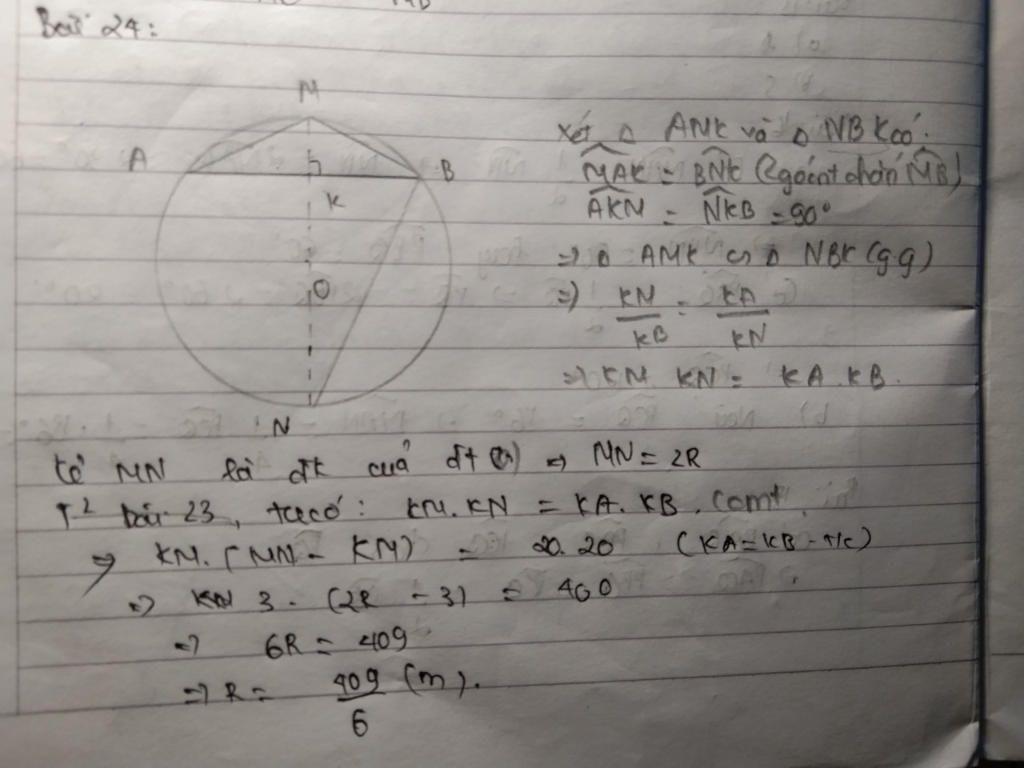 Bài 24:
M
A
B
K
O
N
Xét Δ AMK và Δ NBK có:
MAK = BNK (2 góc nt chắn MB)
AKN = NKB = 90°
=> Δ AMK ∽ Δ NBK (gg)
=> KM/KB = KA/KN
=> KM KN = KA.KB.
Kẻ MN là đk của đt => MN = 2R
T² bài 23, ta có: KM.KN = KA.KB. Comt
=> KM.(MN - KM) = 20.20 (KA=KB - t/c)
=> 3. (2R - 3) = 400
=> 6R = 409
=> R = 409/6 (m).